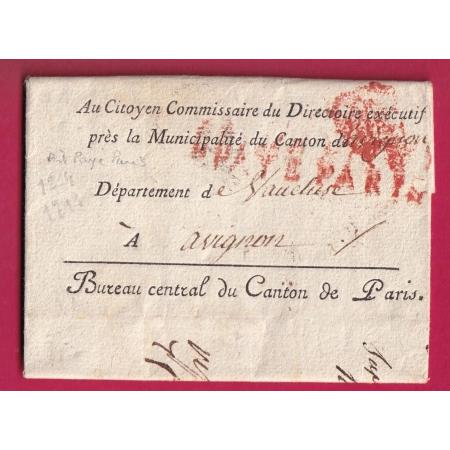 Au Citoyen Commissaire du Directoire exécutif
près la Municipalité du Canton d'avignon
PAYÉ PARIS
Département de Vaucluse
À avignon
Bureau central du Canton de Paris.